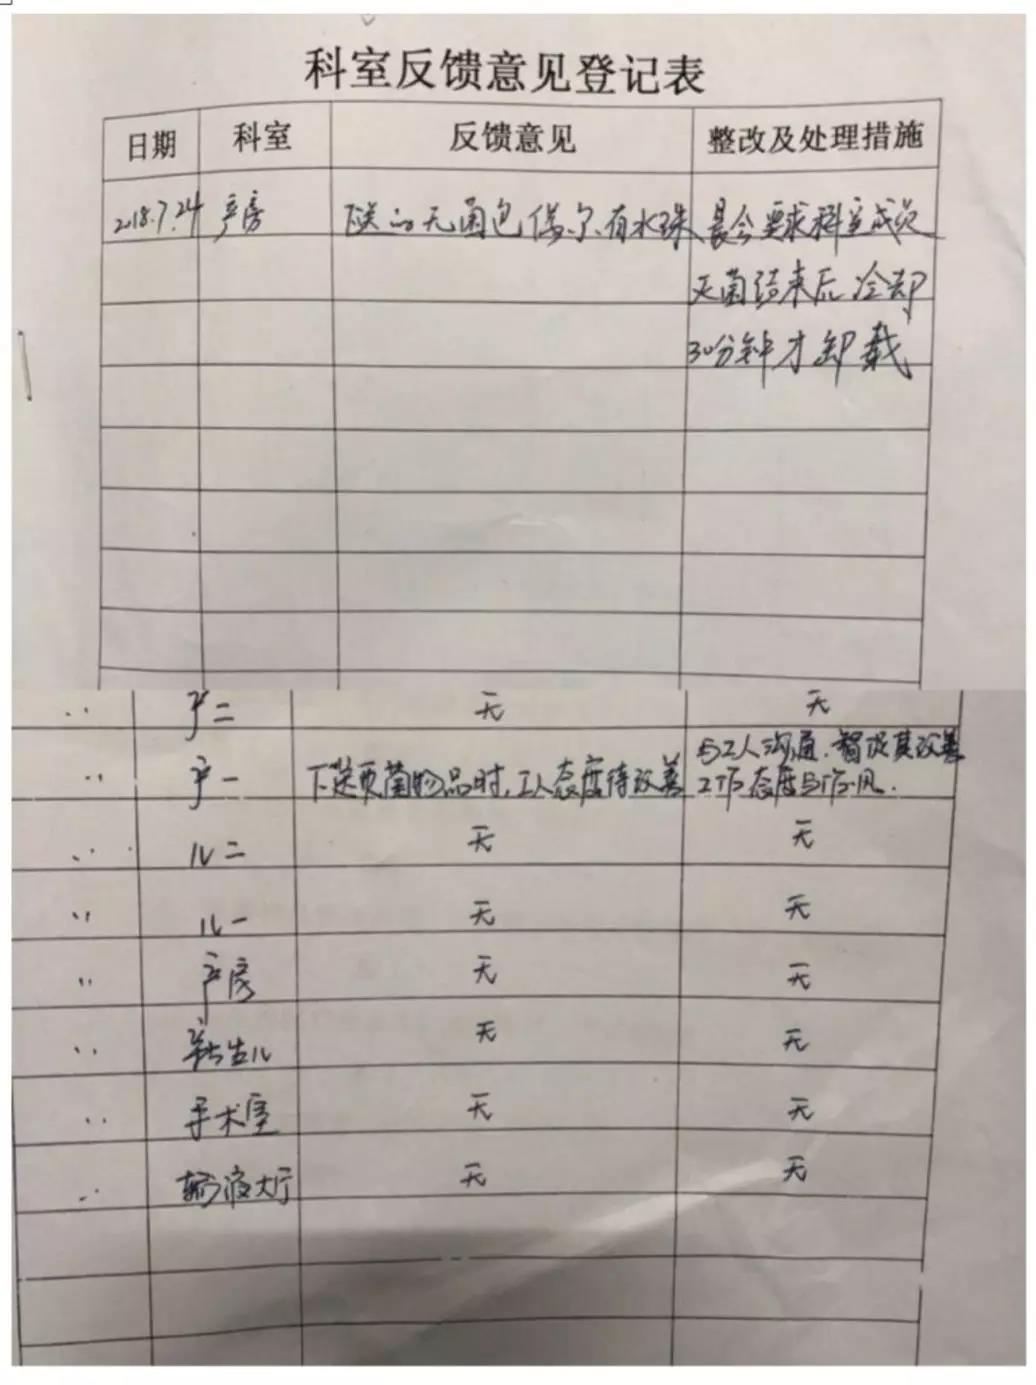 科室反馈意见登记表
日期 科室 反馈意见 整改及处理措施
2018.7.24 产房 下送的无菌包偶尔有水珠 晨会要求科室成员
灭菌结束后冷却
30分钟才卸载
〃 产二 无 无
与工人沟通.督促其改善
〃 产一 下送灭菌物品时,工人态度待改善 工作态度与作风.
〃 儿二 无 无
〃 儿一 无 无
〃 产房 无 无
〃 新生儿 无 无
〃 手术室 无 无
〃 输液大厅 无 无